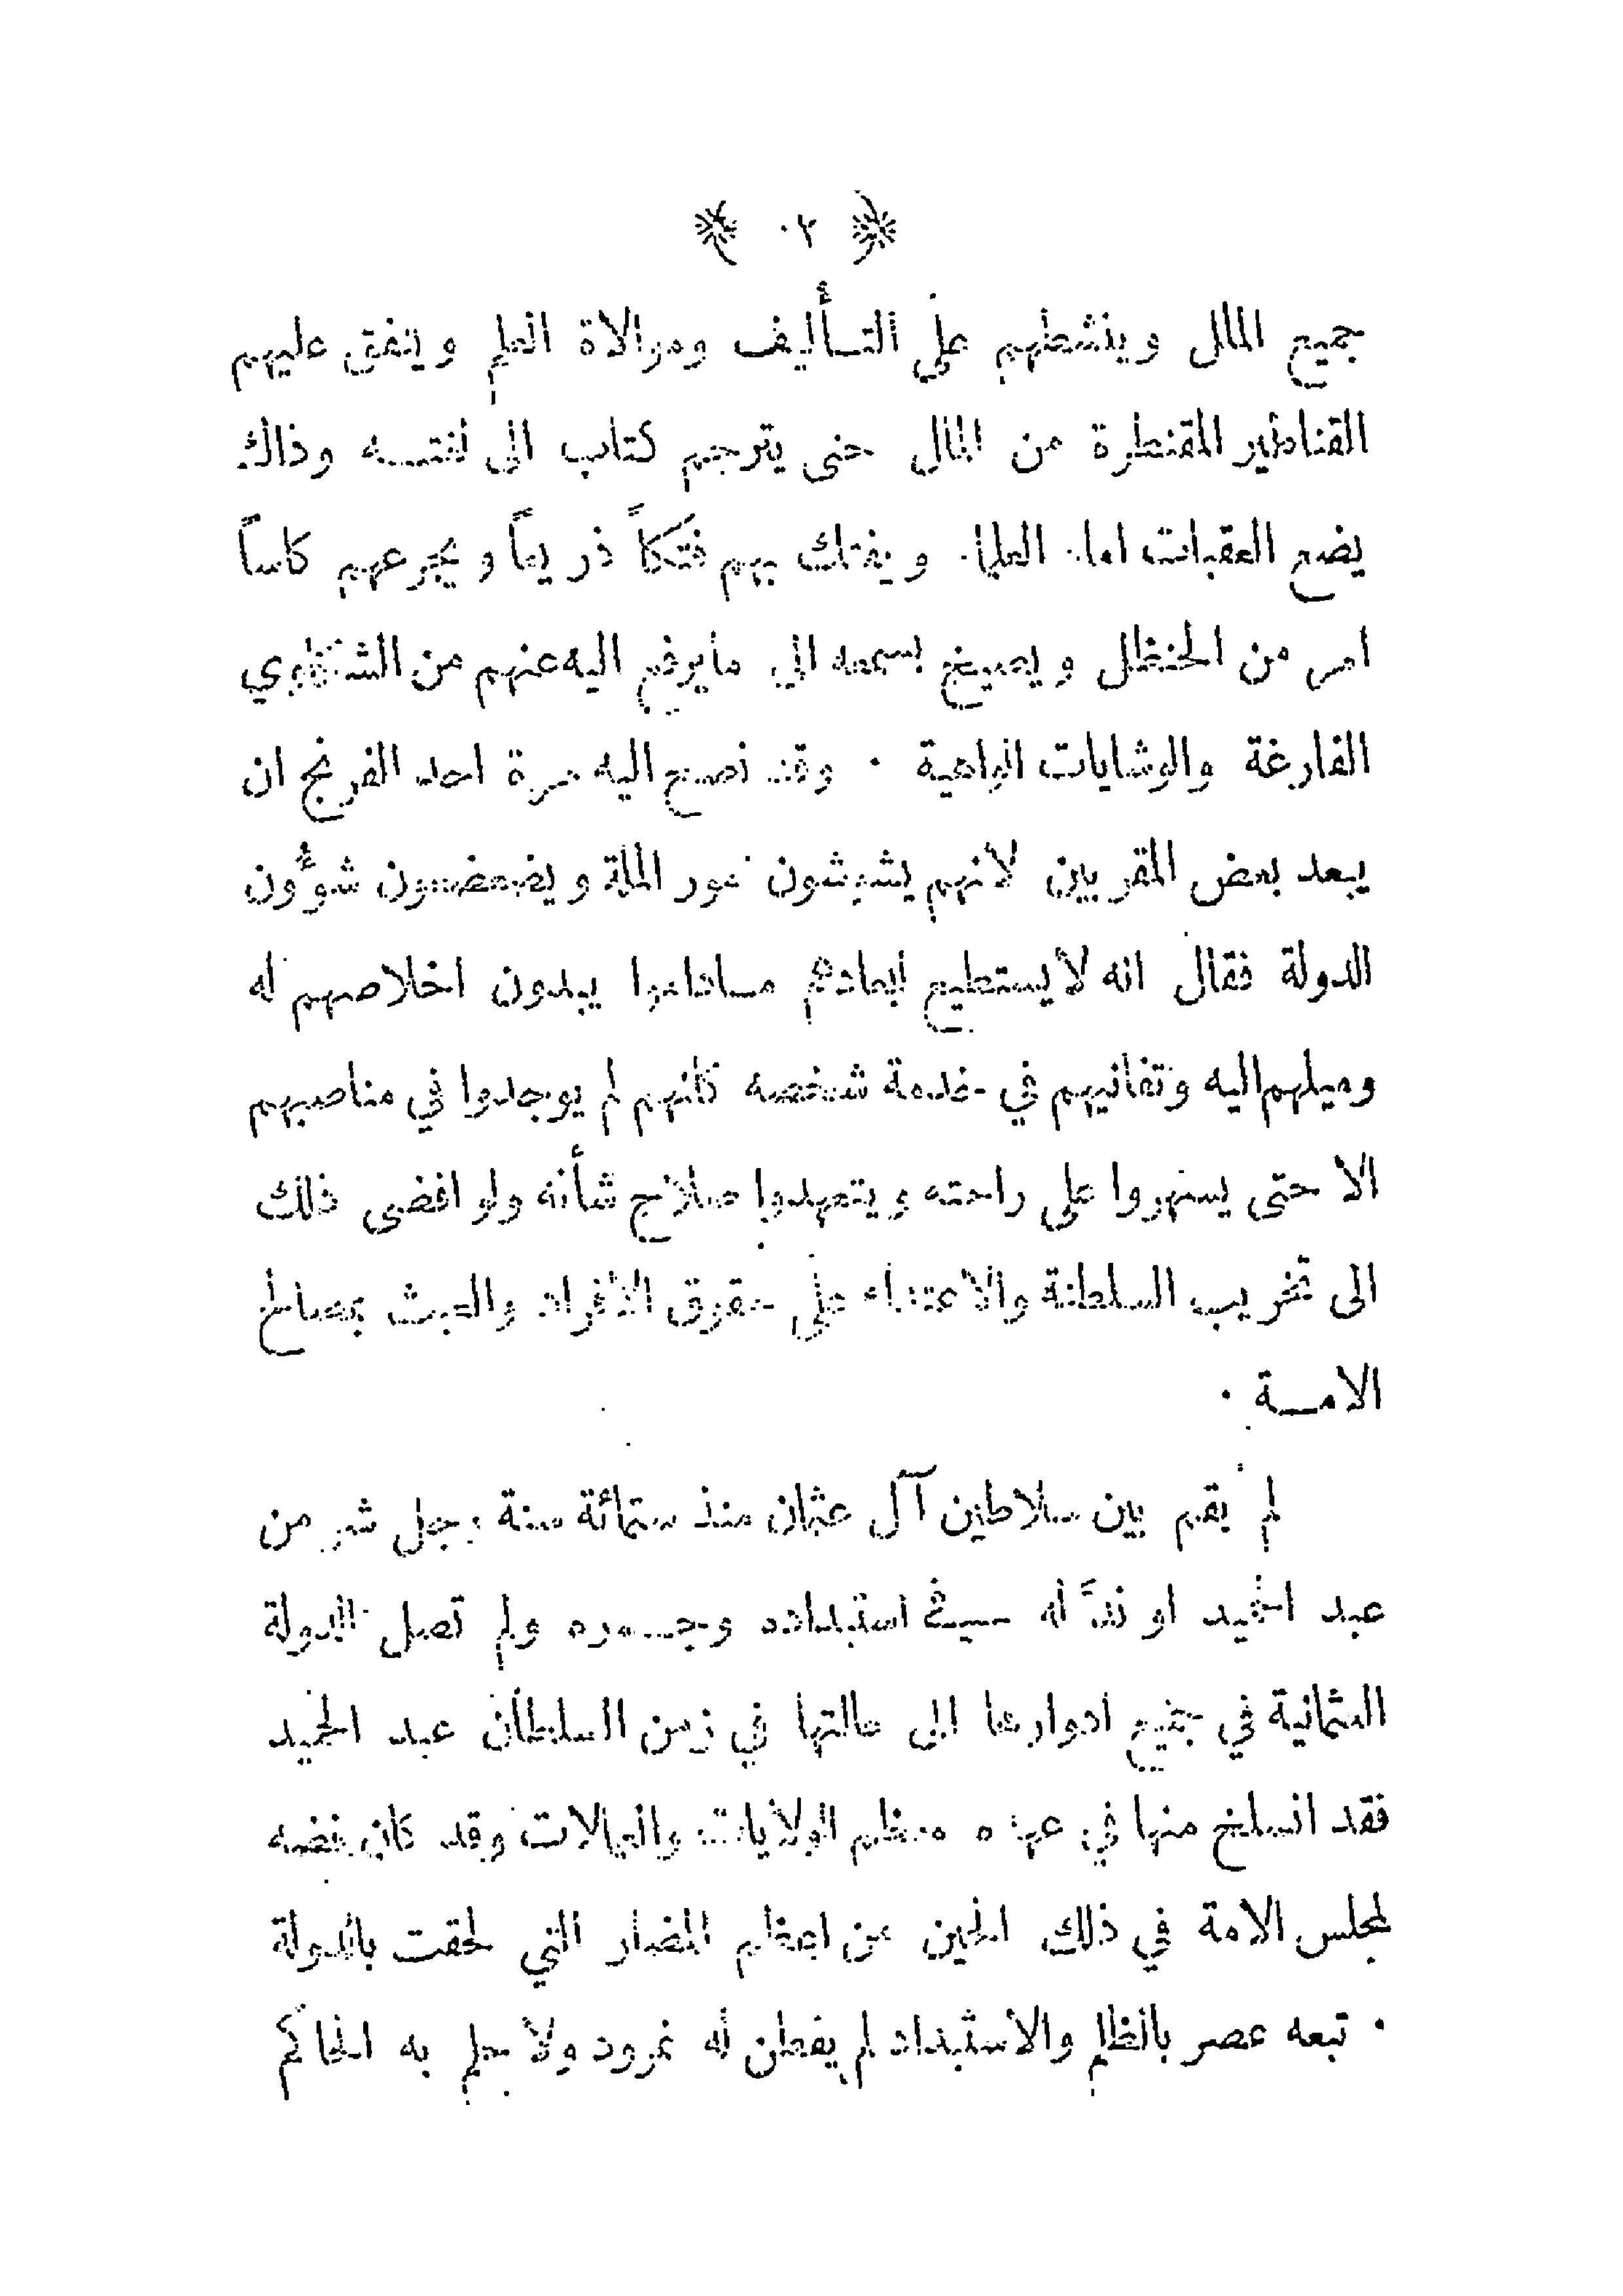 ٠٢
جميع الملل وينشطهم على التأليف وموالاة العلم وينفق عليهم
القناطير المقنطرة من المال حتى يترجم كتاب الى لغتـه وذاك
يضع العقبات امام العلماء ويفتك بهم فتكاً ذريعاً ويجرعهم كاساً
امر من الحنظل ويصيخ بسمعه الى مايرفع اليه عنهم من الشكاوي
الفارغة والوشايات الواهية ٠ وقد نصح اليه مرة احد الفرنج ان
يبعد بعض المقربين لانهم يشوشون امور الملة ويضعضعون شؤُون
الدولة فقال انه لايستطيع ابعادهم ماداموا يبدون اخلاصهم له
وميلهم اليه وتفانيهم في خدمة شخصه كانهم لم يوجدوا في مناصبهم
الا حتى يسهروا على راحته ويتعهدوا صلاح شأنه ولو افضى ذلك
الى تخريب السلطنة والاعتداء على حقوق الافراد والعبث بمصالح
الامـة ٠
لم يقم بين سلاطين آل عثمان منذ ستمائة سنة رجل شر من
عبد الحميد او ندَّ له في استبداده وجـوره ولم تصل الدولة
العثمانية في جميع ادوارها الى حالتها في زمن السلطان عبد الحميد
فقد انسلخ منها في عهده معظم الولايات والعمالات وقد كان فضه
لمجلس الامة في ذلك الحين من اعظم المضار التي لحقت بالدولة
٠ تبعه عصر بالظلم والاستبداد لم يفطن له نمرود ولا حلم به الحاكم